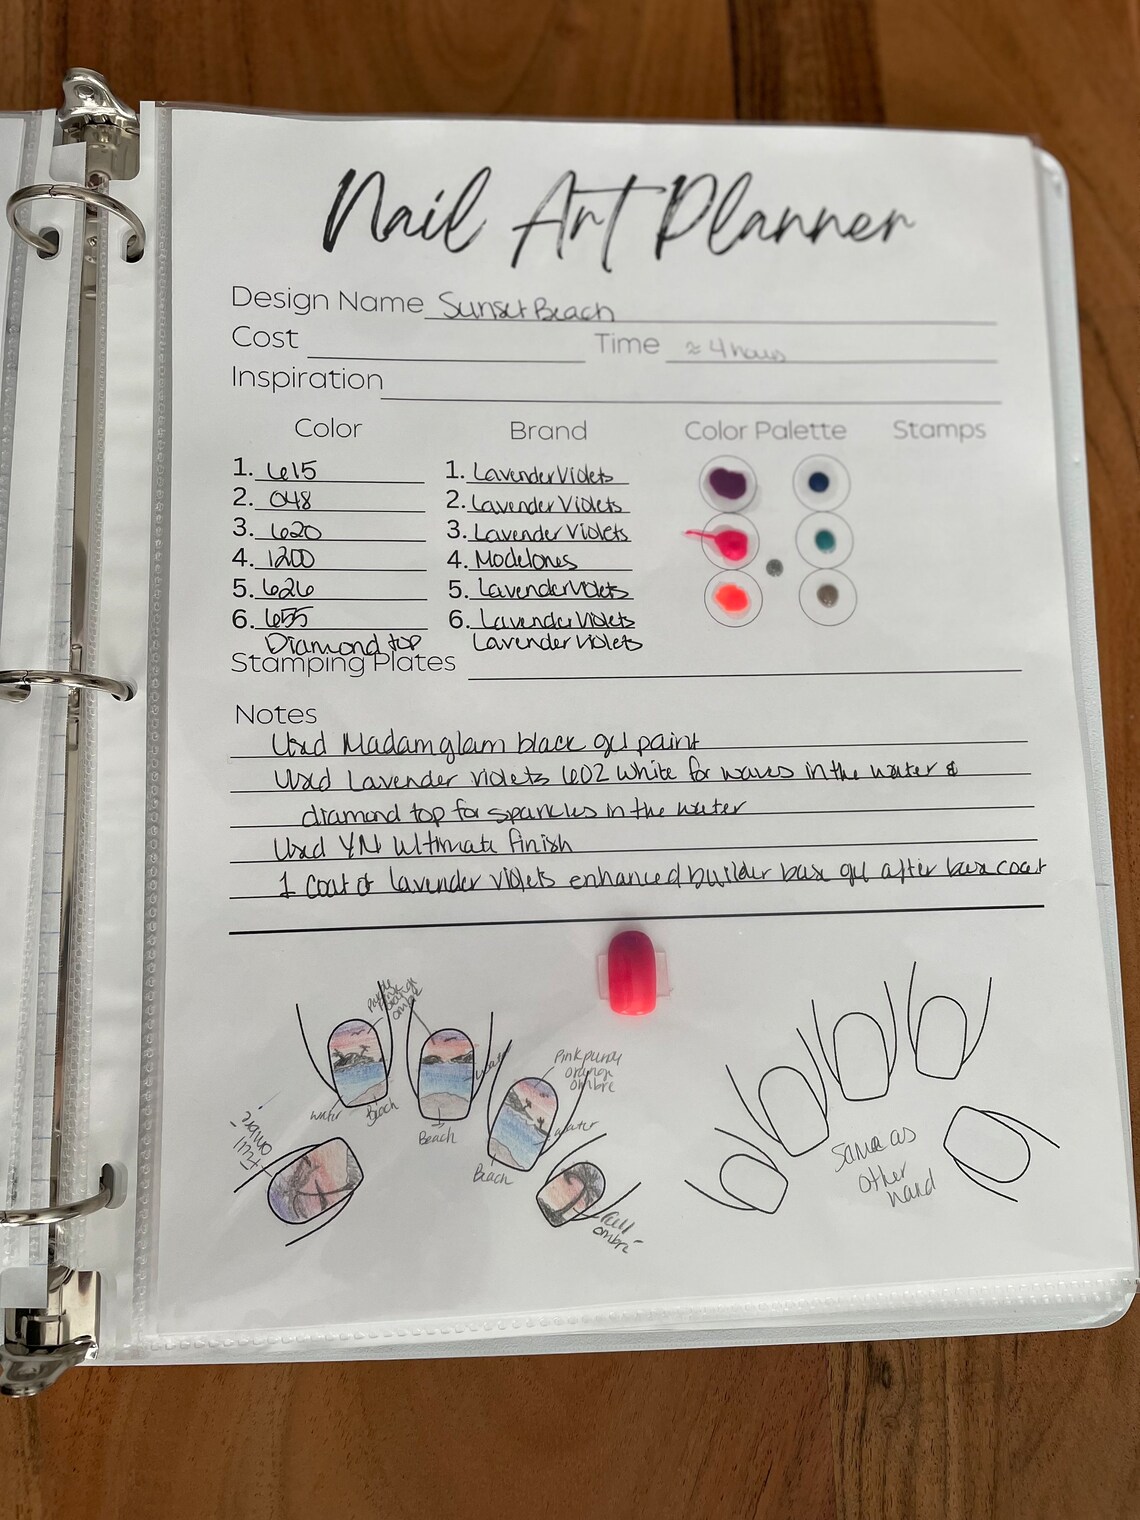 Nail Art Planner
Design Name Sunset Beach
Cost Time ≈ 4 hours
Inspiration
Color Brand Color Palette Stamps
1. 615 1. Lavender Violets
2. 048 2. Lavender Violets
3. 620 3. Lavender Violets
4. 1200 4. Modelones
5. 626 5. Lavender Violets
6. 655 6. Lavender Violets
Diamond top Lavender Violets
Stamping Plates
Notes
Used Madamglam black gel paint
Used Lavender violets 602 white for waves in the water &
diamond top for sparkles in the water
Used YN Ultimate finish
1 coat of lavender violets enhanced builder base gel after base coat
Purple
Pink
orange
ombre
water
Beach
water
Beach
Pink purple
orange
ombre
water
Beach
Full
ombre
Full
ombre
Same as
other
hand